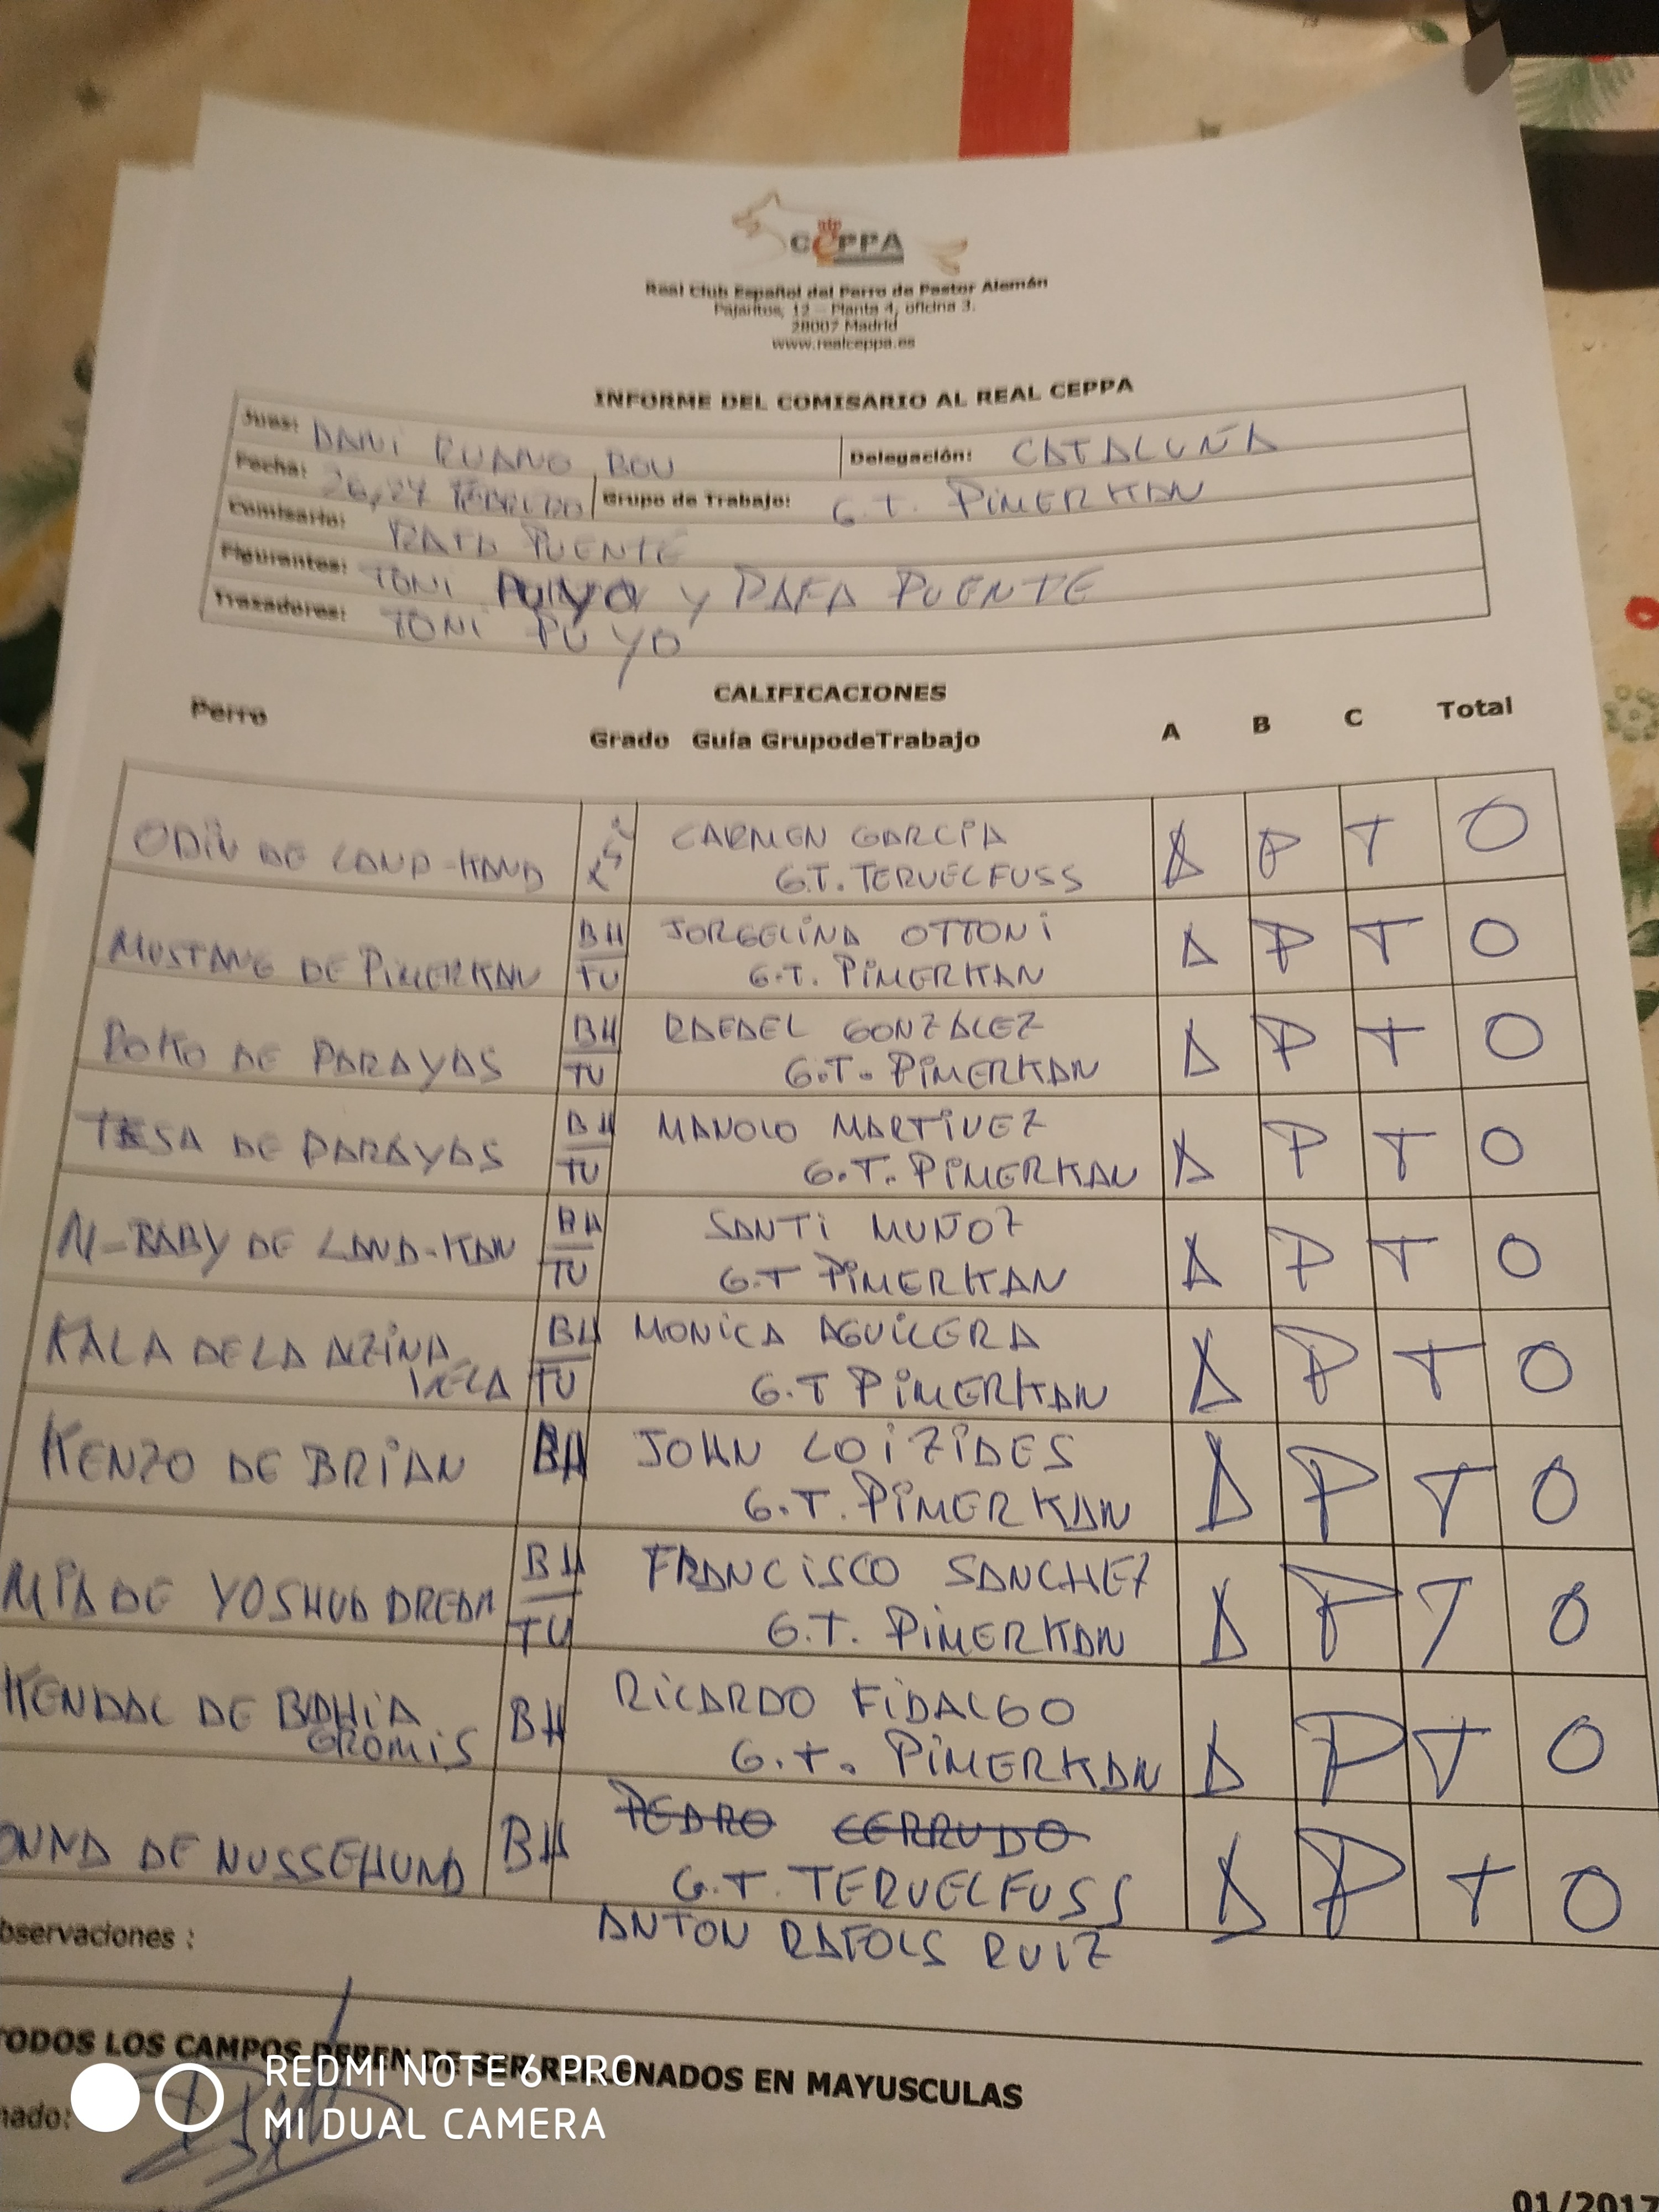 CEPPA
Real Club Español del Perro de Pastor Alemán
Pajaritos, 12 - Planta 4, oficina 3.
28007 Madrid
www.realceppa.es
INFORME DEL COMISARIO AL REAL CEPPA
Juez: DANI RUANO BOU Delegación: CATALUÑA
Fecha: FEBRERO Grupo de Trabajo: G.T. PIMERKAN
Comisario: RAFA PUENTE
Figurantes: TONI PUYO Y RAFA PUENTE
Trazadores: TONI PUYO
CALIFICACIONES
Perro Grado Guía GrupodeTrabajo A B C Total
ODIN DE LAND-KAND CARMEN GARCIA A P T O
G.T. TERUELFUSS
MUSTANG DE PIMERKAN BH TU JORGELINA OTTONI A P T O
G.T. PIMERKAN
DE PARAYAS BH TU RAFAEL GONZALEZ A P T O
G.T. PIMERKAN
TESA DE PARAYAS BH TU MANOLO MARTINEZ A P T O
G.T. PIMERKAN
N-BABY DE LAND-KAN BH TU SANTI MUÑOZ A P T O
G.T PIMERKAN
KALA DE LA ALZINA BH TU MONICA AGUILERA A P T O
VELA G.T PIMERKAN
KENZO DE BRIAN BH JOHN LOIZIDES A P T O
G.T. PIMERKAN
MIA DE YOSHUA DREAM BH TU FRANCISCO SANCHEZ A P T O
G.T. PIMERKAN
KENDAL DE BAHIA BH RICARDO FIDALGO A P T O
GROMIS G.T. PIMERKAN
DE NUSSEHUND BH PEDRO CERRUDO A P T O
G.T. TERUELFUSS
ANTON RAFOLS RUIZ
bservaciones :
TODOS LOS CAMPOS DEBEN DE SER RELLENADOS EN MAYUSCULAS
nado:
REDMI NOTE 6 PRO
MI DUAL CAMERA
01/2017